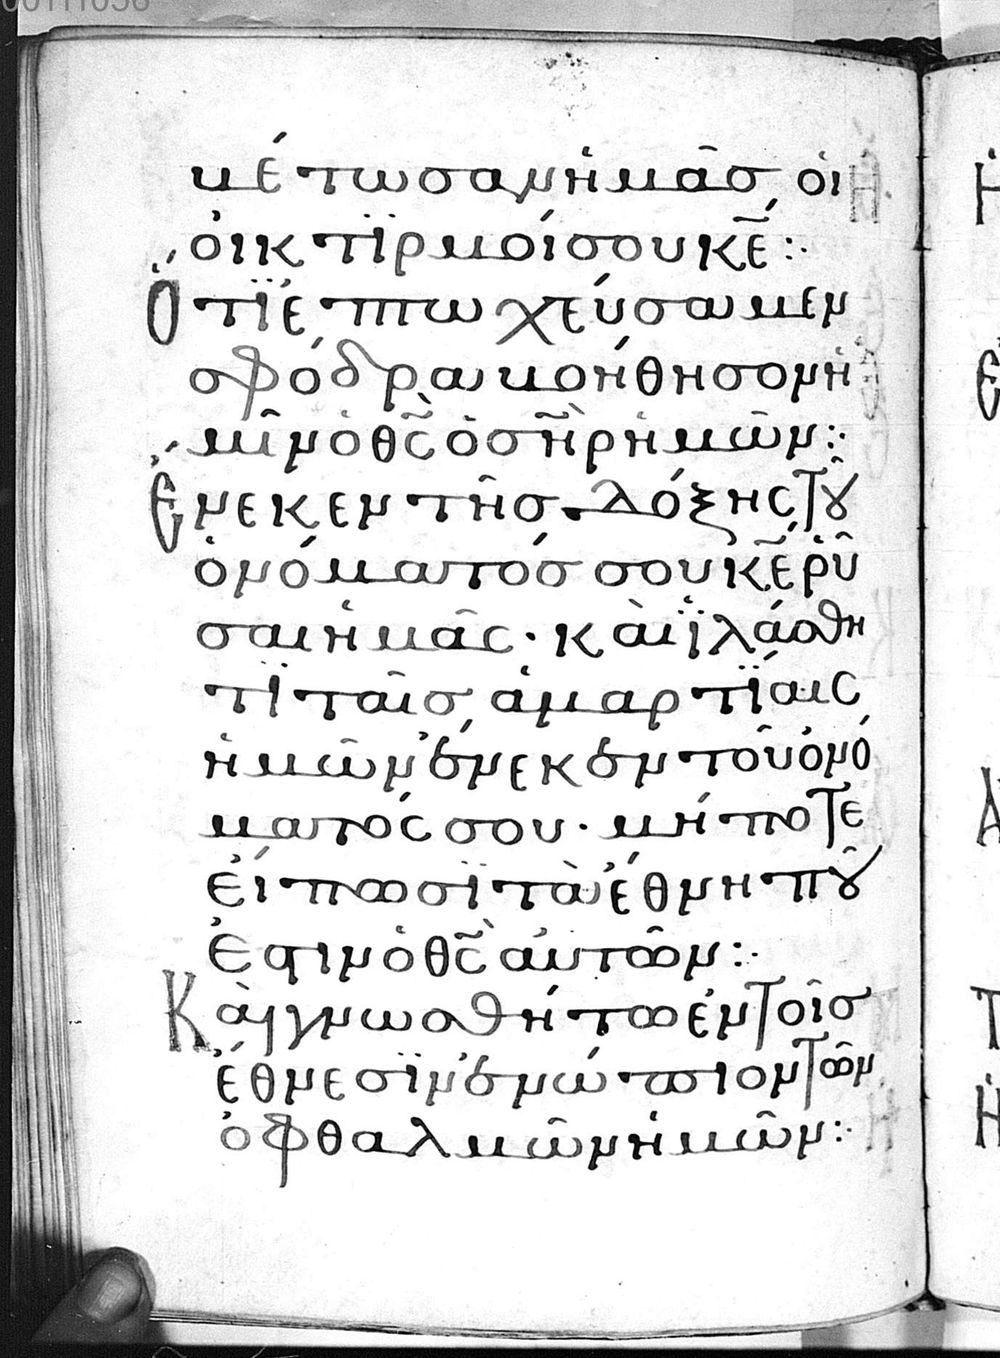 00111038
μέτωσαν ἡμᾶσ, οἱ
οἰκτϊρμοί σου κ̅ε̅:·
Ὅτϊ ἐπτωχεύσαμεν
σφόδρα· βοήθησον ἡ
μῖν ὁ θ̅ς̅ ὁ σ̅η̅ρ̅ ἡμῶν:·
Ἕνεκεν τῆσ δόξης τοῦ
ὀνόματόσ σου κ̅ε̅ ῥῦ
σαι ἡμᾶς· καὶ ϊλάσθη
τϊ ταῖσ ἁμαρτϊαις
ἡμῶν, ἕνεκεν τοῦ ὀνό
ματός σου· μήποτε
εἴπωσϊ τὰ ἔθνη ποῦ
ἐστιν ὁ θ̅ς̅ αὐτῶν:·
Καὶ γνωσθήτω ἐν τοῖσ
ἔθνεσϊν ἐνώπιον τῶν
ὀφθαλμῶν ἡμῶν:·
Ἡ
Ἐ
Α
Τ
Ἡ